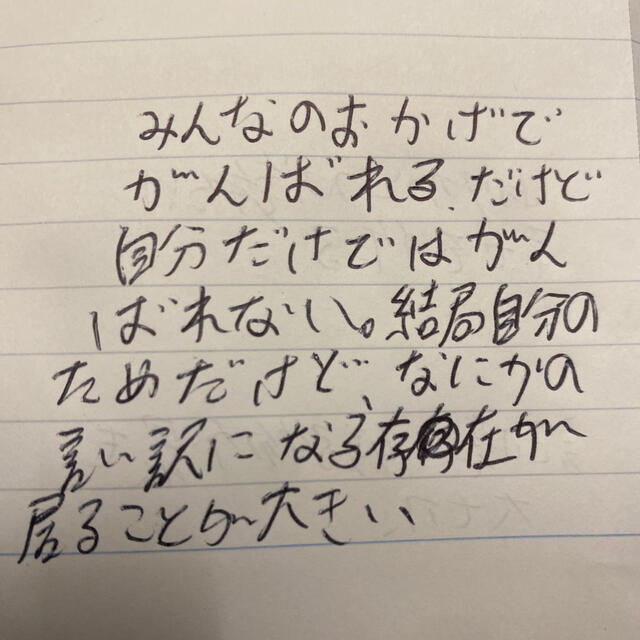 みんなのおかげで
がんばれる、だけど
自分だけではがん
ばれない。結局自分の
ためだけど、なにかの
言い訳になる存在が
居ることが大きい